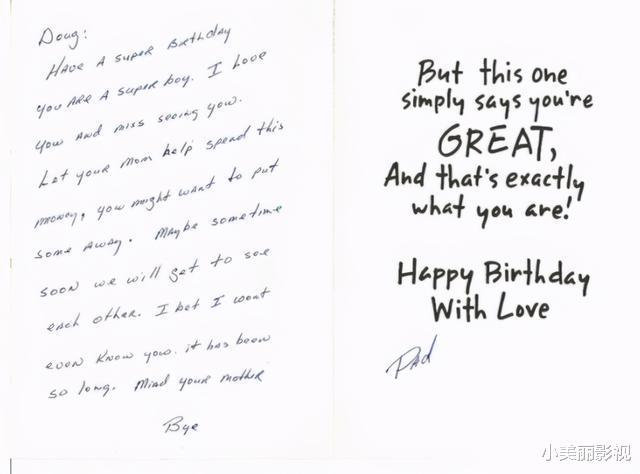 Doug:
Have A super Birthday
you are A super boy. I Love
you and miss seeing you.
Let your mom help spend this
money, you might want to put
some away. Maybe sometime
soon we will get to see
each other. I bet I wont
even know you. it has been
so long. Mind your mother
Bye
But this one
simply says you're
GREAT,
And that's exactly
what you are!
Happy Birthday
With Love
Dad
小美丽影视